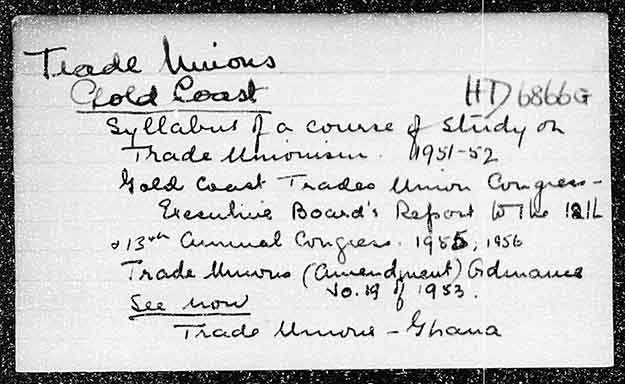 Trade Unions
Gold Coast HD6866G
Syllabus of a course of study on
Trade Unionism. 1951-52
Gold Coast Trades Union Congress -
Executive Board's Report to the 12th
& 13th Annual Congress. 1955, 1956
Trade Unions (Amendment) Ordinance
No. 19 of 1953.
See now
Trade Unions - Ghana